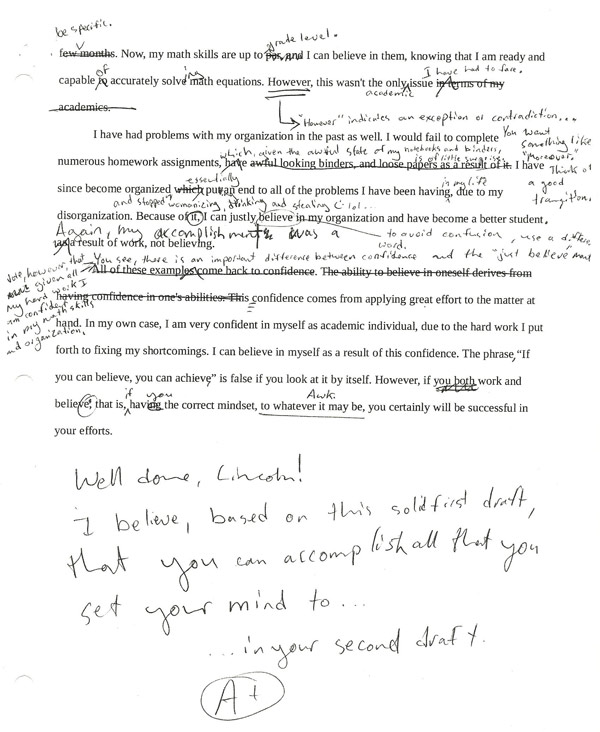 be specific.
grade level.
few months. Now, my math skills are up to par, and I can believe in them, knowing that I am ready and
of ing I have had to face.
capable to accurately solve math equations. However, this wasn't the only issue in terms of my
academic
academics.
"However" indicates an exception or contradiction...
I have had problems with my organization in the past as well. I would fail to complete
You want something like "Moreover."
which, given the awful state of my notebooks and binders, is of little surprise.
numerous homework assignments, have awful looking binders, and loose papers as a result of it. I have
Think of a good transition.
essentially in my life
since become organized which put an end to all of the problems I have been having, due to my
and stopped womanizing, thinking and stealing
disorganization. Because of it, I can justly believe in my organization and have become a better student,
Again, my accomplishments was a to avoid confusion, use a different word.
as a result of work, not believing.
You see, there is an important difference between confidence and the "just believe"
Note, however, that given all my hard work I am confident in my math skills and organization.
All of these examples come back to confidence. The ability to believe in oneself derives from
having confidence in one's abilities. This confidence comes from applying great effort to the matter at
hand. In my own case, I am very confident in myself as academic individual, due to the hard work I put
forth to fixing my shortcomings. I can believe in myself as a result of this confidence. The phrase, "If
you can believe, you can achieve" is false if you look at it by itself. However, if you both work and
if you Awk.
believe, that is, having the correct mindset, to whatever it may be, you certainly will be successful in
your efforts.
Well done, Lincoln!
I believe, based on this solid first draft,
that you can accomplish all that you
set your mind to...
...in your second draft.
A+